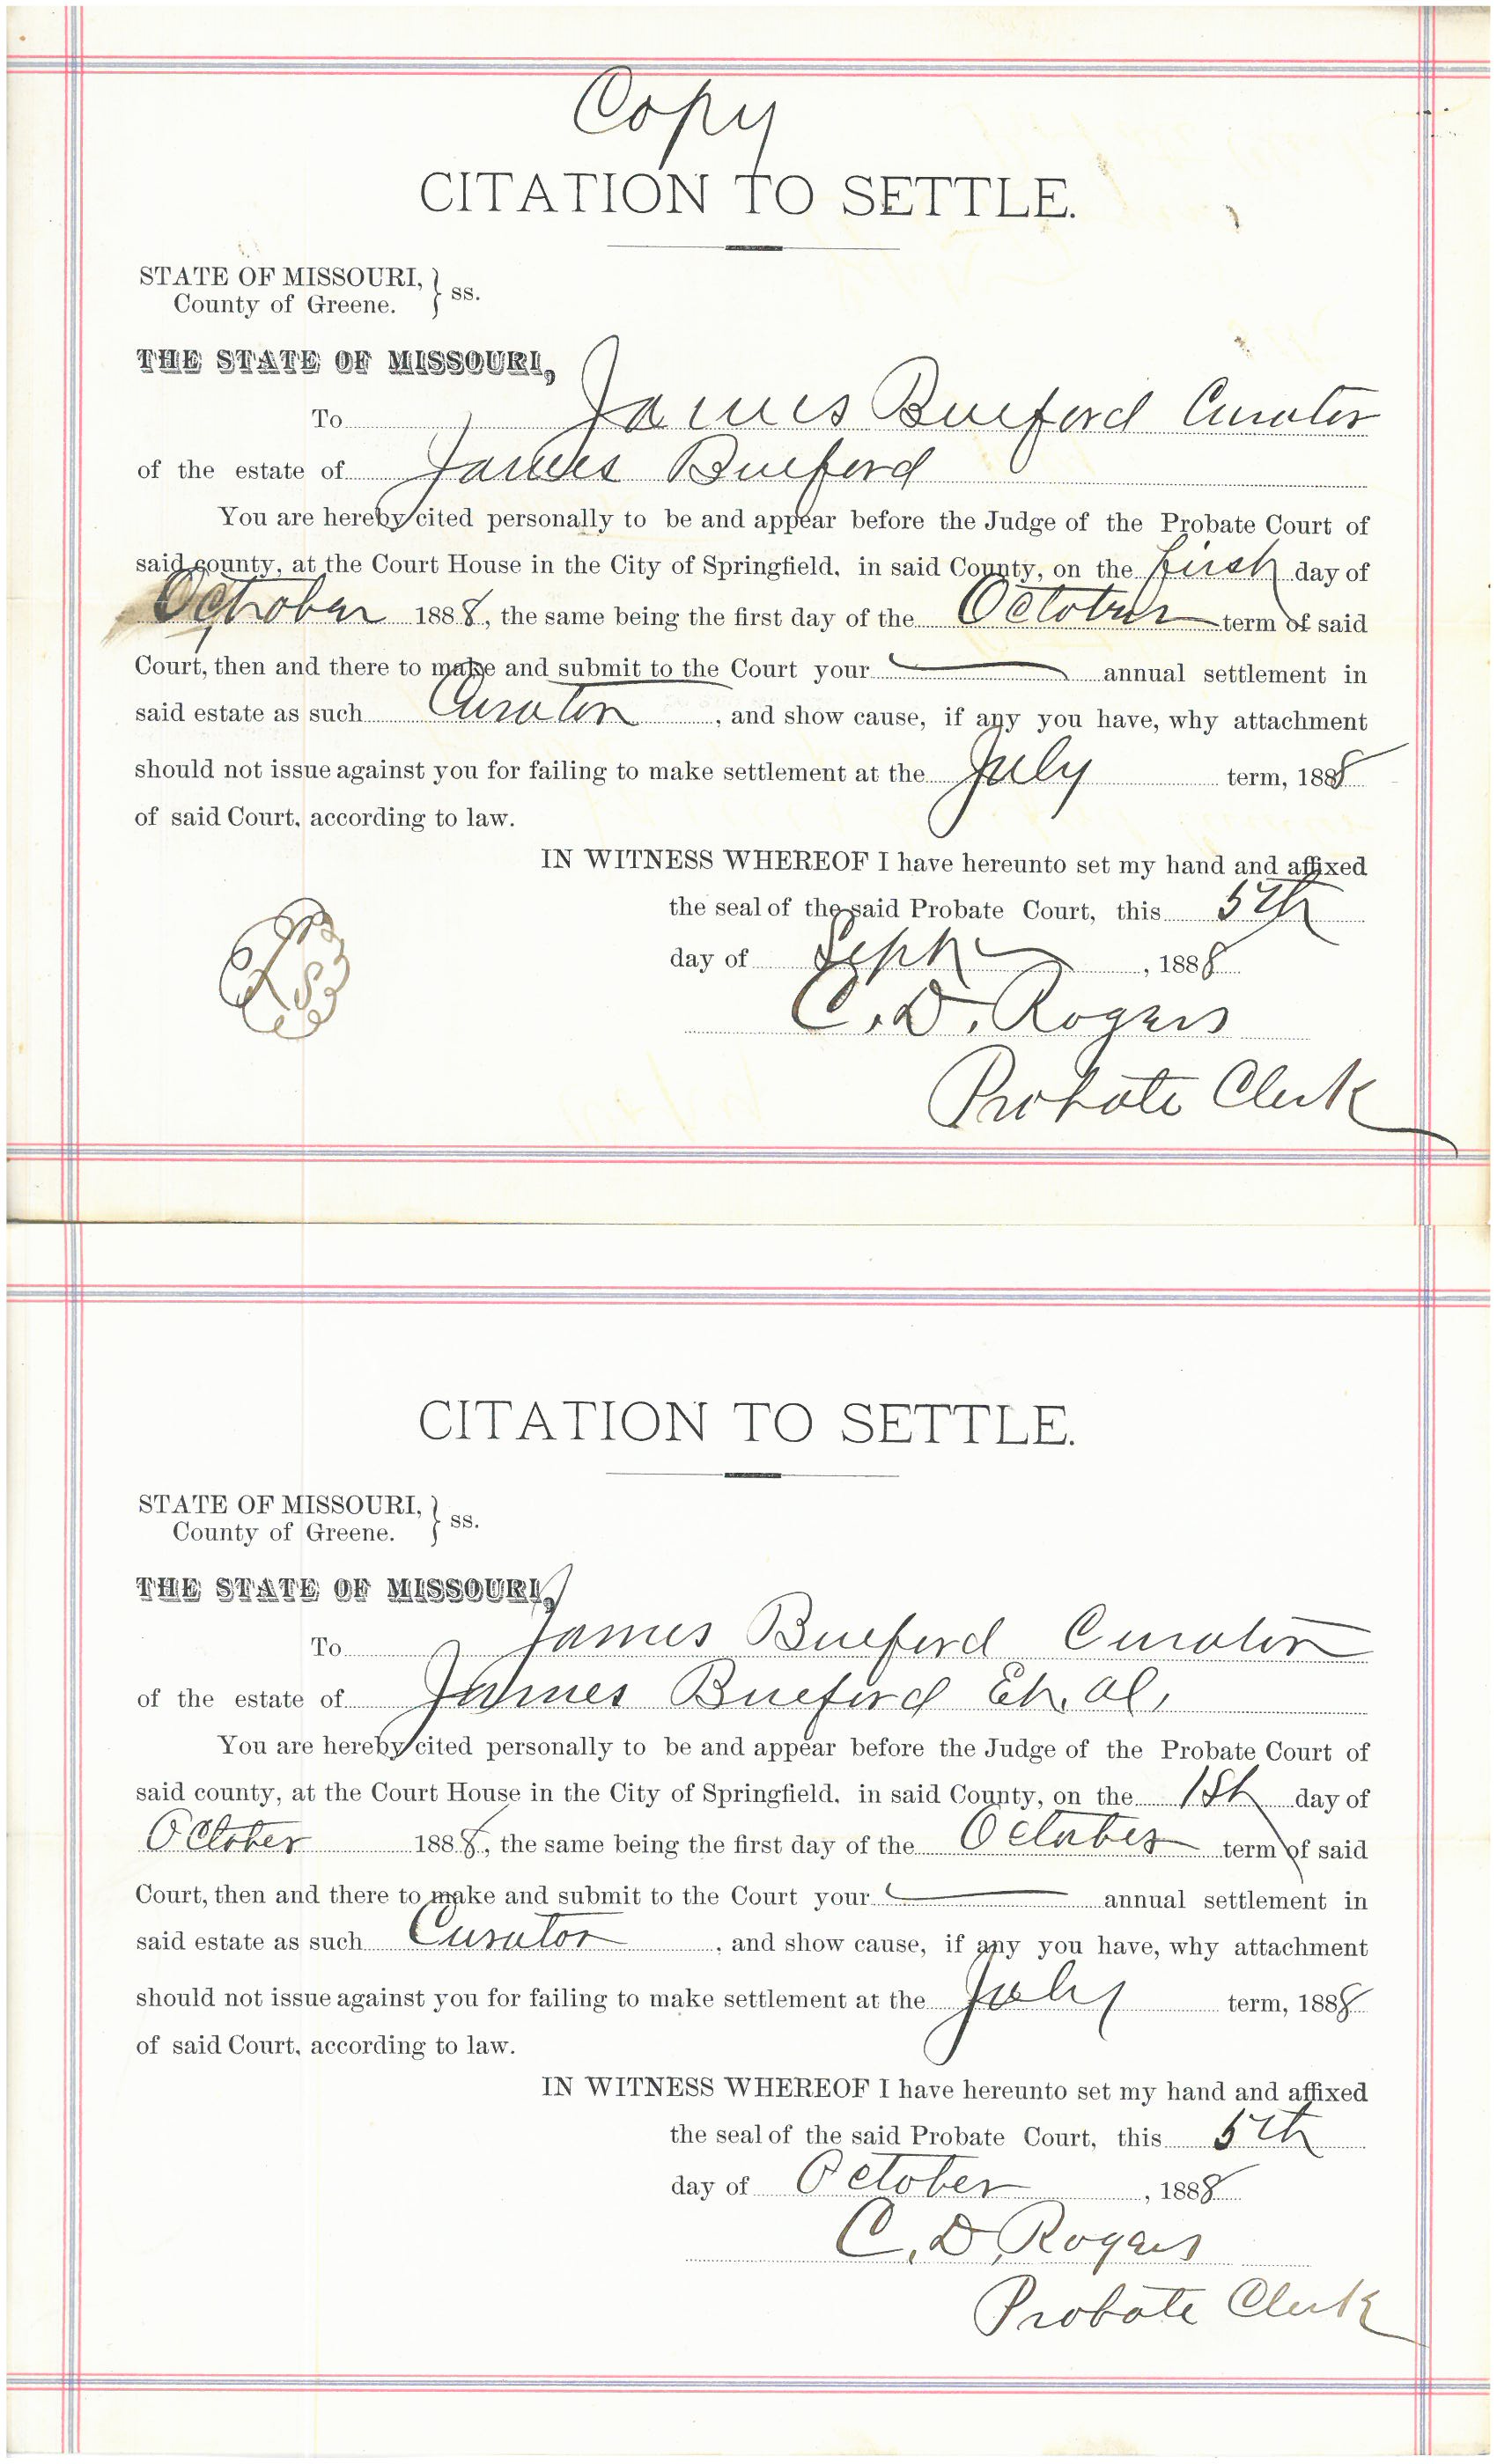 Copy
CITATION TO SETTLE.
STATE OF MISSOURI, } ss.
County of Greene.
THE STATE OF MISSOURI,
To James Bueford Curator
of the estate of James Bueford
You are hereby cited personally to be and appear before the Judge of the Probate Court of
said county, at the Court House in the City of Springfield, in said County, on the first day of
October 1888, the same being the first day of the October term of said
Court, then and there to make and submit to the Court your annual settlement in
said estate as such Curator, and show cause, if any you have, why attachment
should not issue against you for failing to make settlement at the July term, 1888
of said Court, according to law.
IN WITNESS WHEREOF I have hereunto set my hand and affixed
the seal of the said Probate Court, this 5th
day of Sept, 1888
C. D. Rogers
Probate Clerk
CITATION TO SETTLE.
STATE OF MISSOURI, } ss.
County of Greene.
THE STATE OF MISSOURI,
To James Bueford Curator
of the estate of James Bueford Et. al,
You are hereby cited personally to be and appear before the Judge of the Probate Court of
said county, at the Court House in the City of Springfield, in said County, on the 1st day of
October 1888, the same being the first day of the October term of said
Court, then and there to make and submit to the Court your annual settlement in
said estate as such Curator, and show cause, if any you have, why attachment
should not issue against you for failing to make settlement at the July term, 1888
of said Court, according to law.
IN WITNESS WHEREOF I have hereunto set my hand and affixed
the seal of the said Probate Court, this 5th
day of October, 1888
C. D. Rogers
Probate Clerk